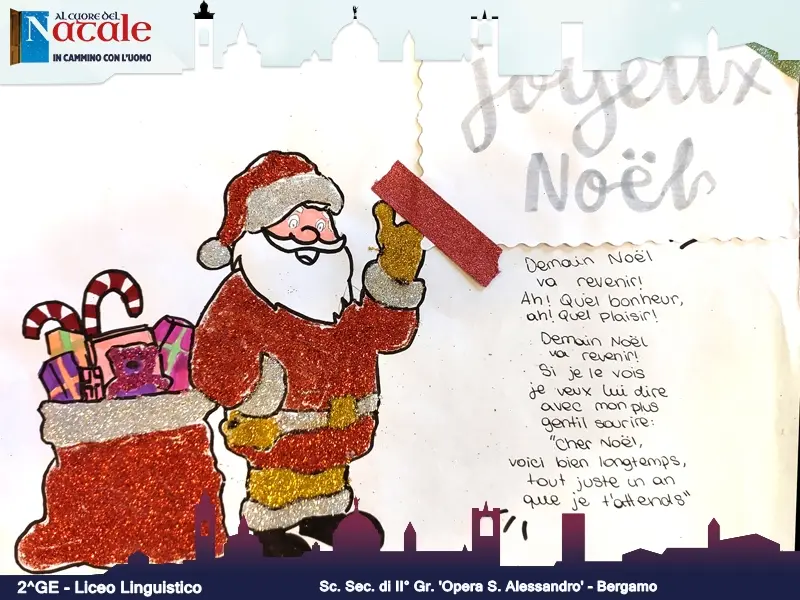 AL CUORE DEL
Natale
IN CAMMINO CON L'UOMO
joyeux
Noël
Demain Noël
va revenir!
Ah! Quel bonheur,
ah! Quel plaisir!
Demain Noël
va revenir!
Si je le vois
je veux lui dire
avec mon plus
gentil sourire:
"Cher Noël,
voici bien longtemps,
tout juste un an
que je t'attends"
2^GE - Liceo Linguistico
Sc. Sec. di II° Gr. 'Opera S. Alessandro' - Bergamo